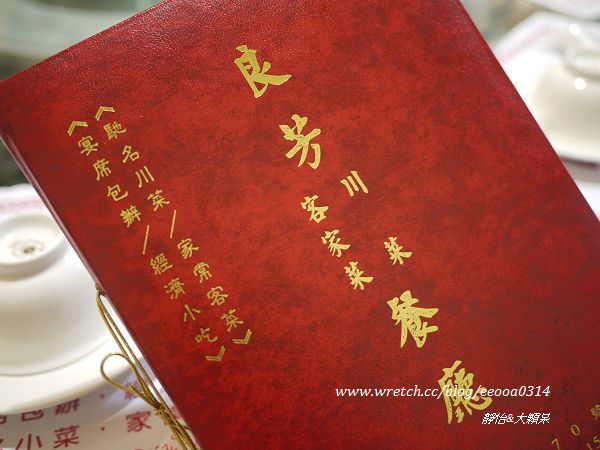 良芳川菜餐廳
客家菜
《馳名川菜/家常客菜》
《宴席包辦/經濟小吃》
www.wretch.cc/blog/eeooa0314
靜怡&大顆呆
70
15
小菜·家